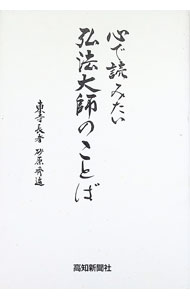 心で読みたい
弘法大師のことば
東寺長者 砂原秀遍
高知新聞社